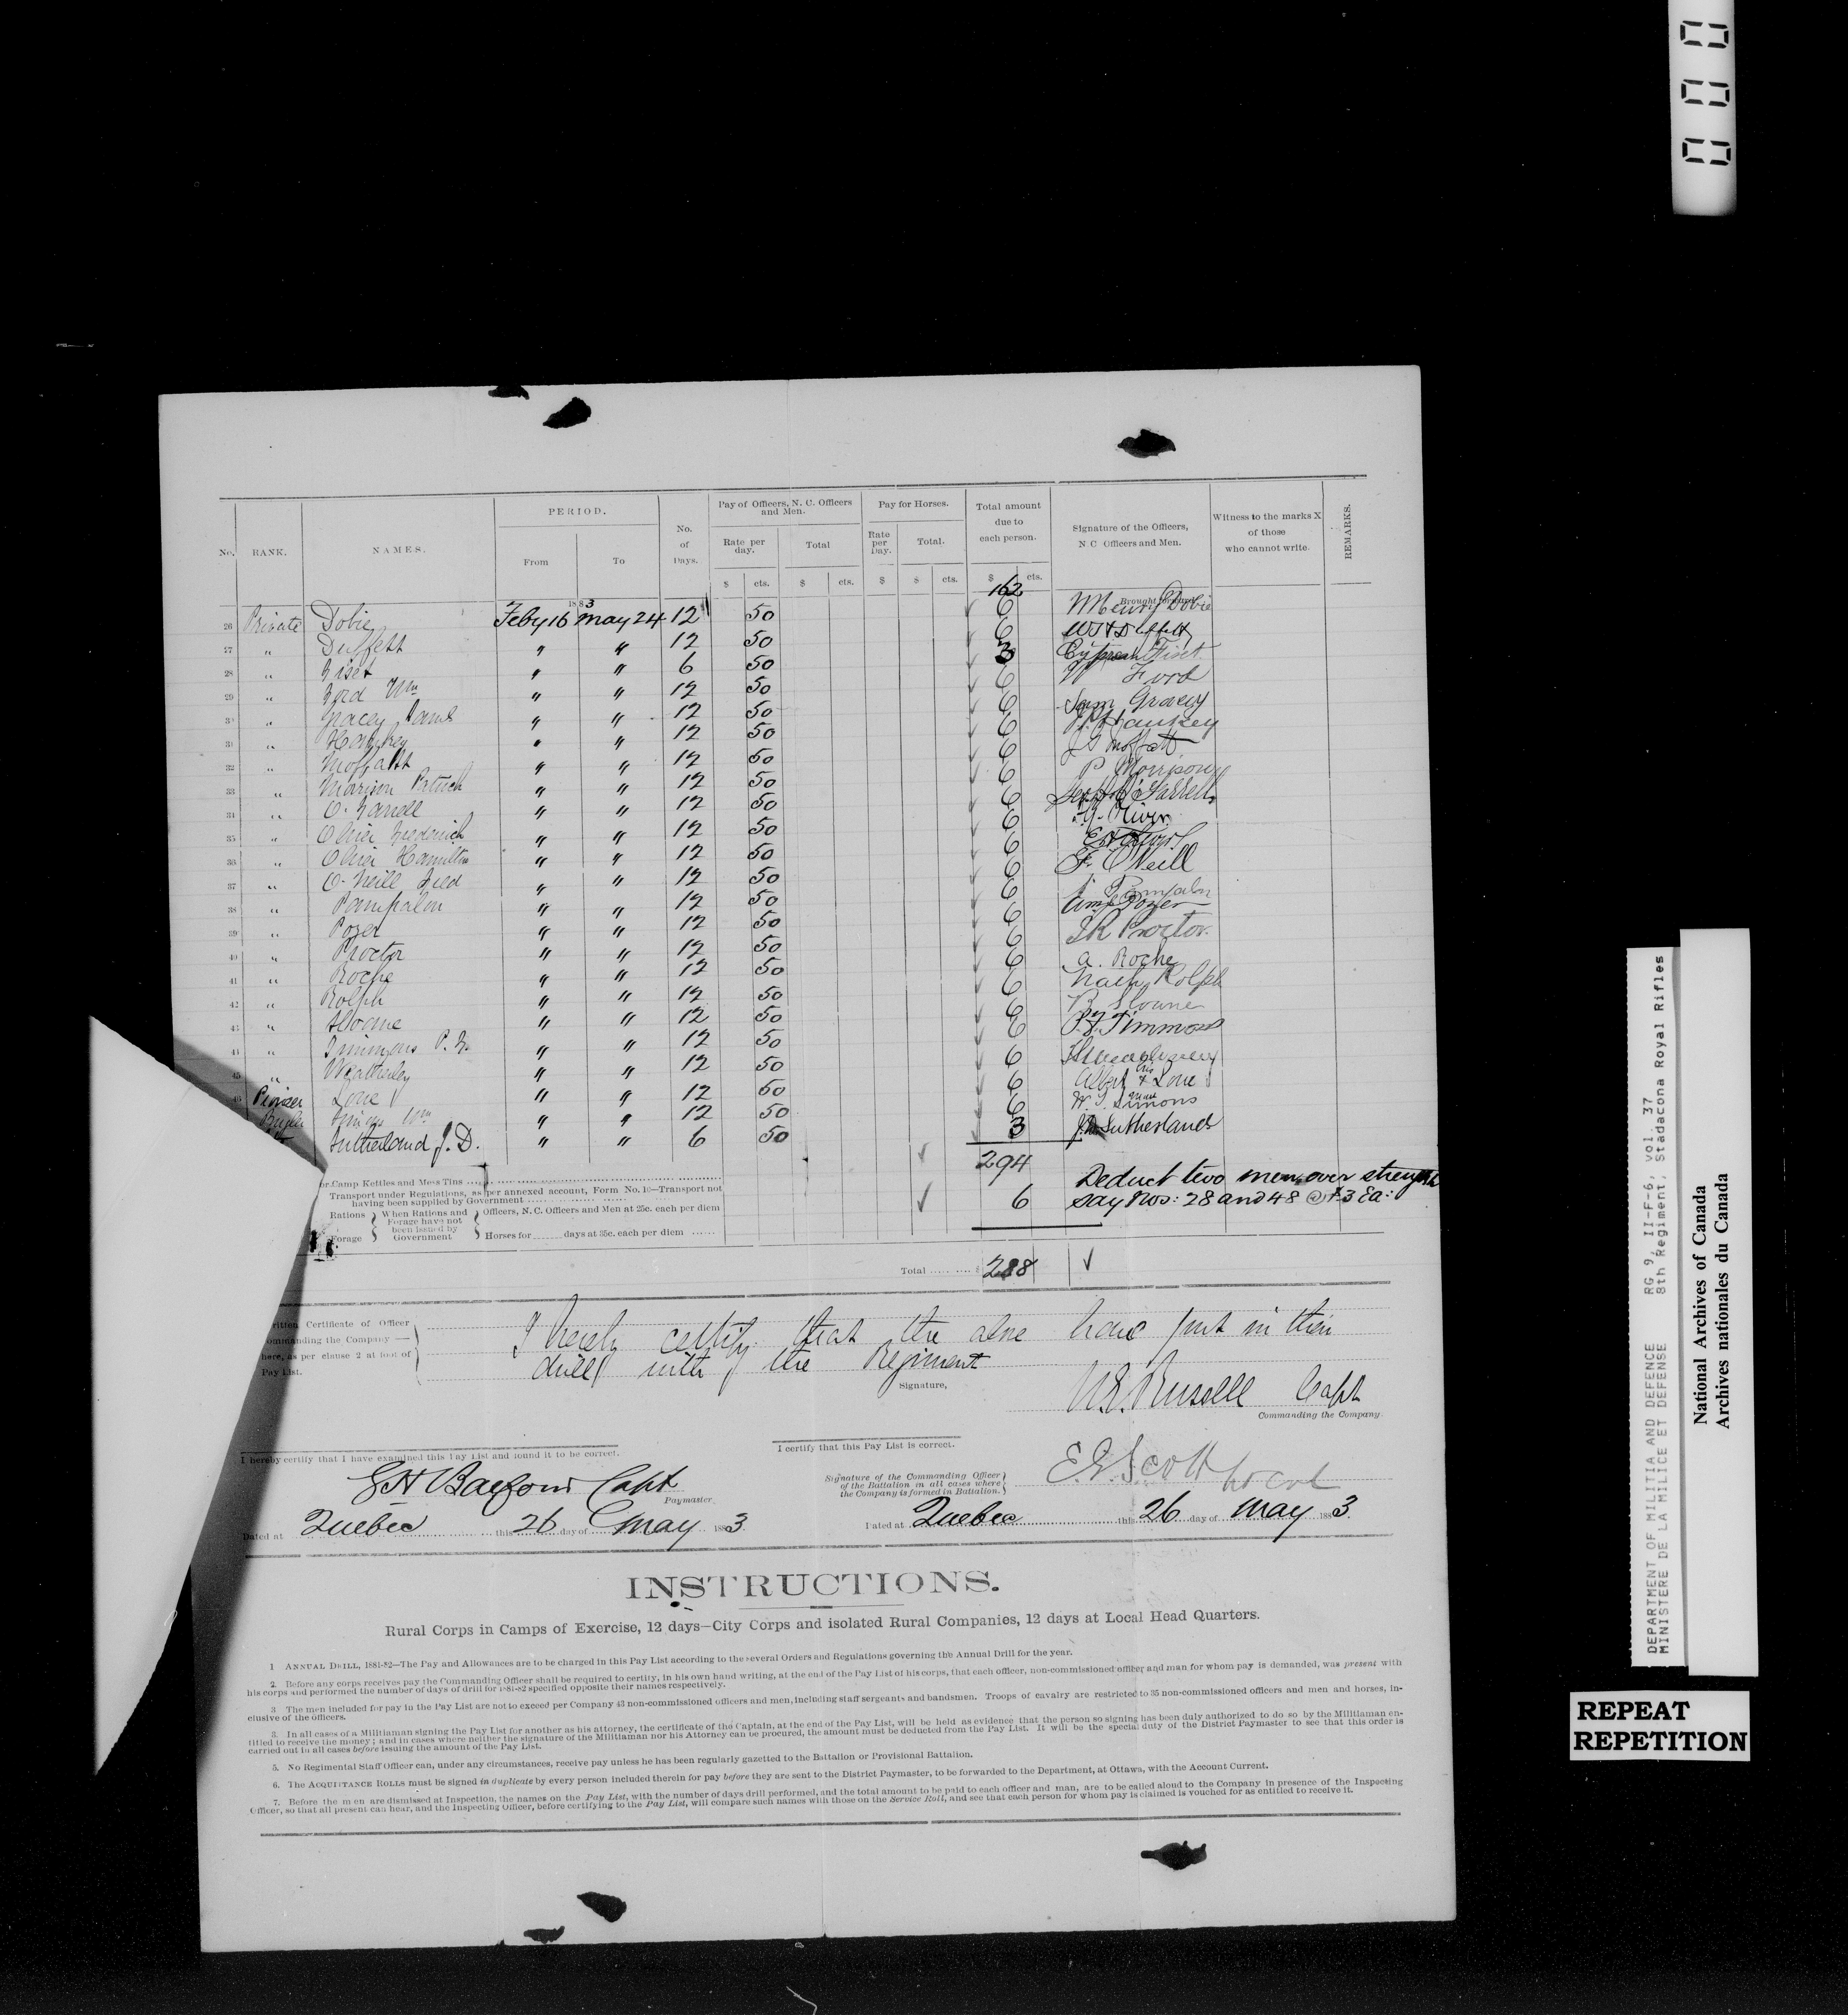 000
PERIOD.
Pay of Officers, N. C. Officers and Men.
Pay for Horses.
Total amount due to each person.
No. RANK. NAMES. From To No. of Days. Rate per day. Total Rate per Day. Total. Signature of the Officers, N. C. Officers and Men. Witness to the marks X of those who cannot write. REMARKS.
$ cts. $ cts. $ $ cts. $ cts.
162 Brought forward
1883
26 Private Dobie Feby 16 May 24 12 50 6 Henry Dobie
27 " Duffett " " 12 50 6
28 " Fiset " " 6 50 3 Fiset
29 " Ford Wm " " 12 50 6 W Ford
30 " Gracey James " " 12 50 6 Jam Gracey
31 " " " 12 50 6
32 " Moffatt " " 12 50 6 J G Moffatt
33 " Morison Patrick " " 12 50 6 P Morrison
34 " O'Farrell " " 12 50 6 O'Farrell
35 " Oliver Frederick " " 12 50 6 F. Oliver
36 " Oliver Hamilton " " 12 50 6
37 " O'Neill Fred " " 12 50 6 F. O'Neill
38 " Pampalon " " 12 50 6 Pampalon
39 " Pozer " " 12 50 6 Pozer
40 " Proctor " " 12 50 6 J R Proctor
41 " Roche " " 12 50 6 a. Roche
42 " Rolph " " 12 50 6 Rolph
43 " " " 12 50 6
44 " Timmons P. F. " " 12 50 6 P. F. Timmons
45 " Weatherley " " 12 50 6
46 Pioneer Lone " " 12 50 6 Albert his X mark Lone
Bugler Simons Wm " " 12 50 6 W. Simons
Sutherland J. D. " " 6 50 3 J. D. Sutherland
294
or Camp Kettles and Mess Tins
Transport under Regulations, as per annexed account, Form No. 10—Transport not having been supplied by Government
Rations Forage When Rations and Forage have not been issued by Government
Officers, N. C. Officers and Men at 25c. each per diem
Horses for days at 35c. each per diem
6 Deduct two men over strength
say Nos: 28 and 48 @ $3 Ea:
Total $ 288
ritten Certificate of Officer
ommanding the Company —
here, as per clause 2 at foot of
Pay List.
I hereby certify that the above have put in their
drill with the Regiment
Signature,
Russell Capt
Commanding the Company.
I hereby certify that I have examined this Pay List and found it to be correct.
Capt
Paymaster.
Dated at Quebec this 26 day of May 1883.
I certify that this Pay List is correct.
Signature of the Commanding Officer of the Battalion in all cases where the Company is formed in Battalion.
Scott
Dated at Quebec this 26 day of May 1883.
INSTRUCTIONS.
Rural Corps in Camps of Exercise, 12 days—City Corps and isolated Rural Companies, 12 days at Local Head Quarters.
1 ANNUAL DRILL, 1881-82—The Pay and Allowances are to be charged in this Pay List according to the several Orders and Regulations governing the Annual Drill for the year.
2. Before any corps receives pay the Commanding Officer shall be required to certify, in his own hand writing, at the end of the Pay List of his corps, that each officer, non-commissioned officer and man for whom pay is demanded, was present with
his corps and performed the number of days of drill for 1881-82 specified opposite their names respectively.
3 The men included for pay in the Pay List are not to exceed per Company 43 non-commissioned officers and men, including staff sergeants and bandsmen. Troops of cavalry are restricted to 35 non-commissioned officers and men and horses, in-
clusive of the officers.
3. In all cases of a Militiaman signing the Pay List for another as his attorney, the certificate of the Captain, at the end of the Pay List, will be held as evidence that the person so signing has been duly authorized to do so by the Militiaman en-
titled to receive the money; and in cases where neither the signature of the Militiaman nor his Attorney can be procured, the amount must be deducted from the Pay List. It will be the special duty of the District Paymaster to see that this order is
carried out in all cases before issuing the amount of the Pay List.
5. No Regimental Staff Officer can, under any circumstances, receive pay unless he has been regularly gazetted to the Battalion or Provisional Battalion.
6. The ACQUITTANCE ROLLS must be signed in duplicate by every person included therein for pay before they are sent to the District Paymaster, to be forwarded to the Department, at Ottawa, with the Account Current.
7. Before the men are dismissed at Inspection, the names on the Pay List, with the number of days drill performed, and the total amount to be paid to each officer and man, are to be called aloud to the Company in presence of the Inspecting
Officer, so that all present can hear, and the Inspecting Officer, before certifying to the Pay List, will compare such names with those on the Service Roll, and see that each person for whom pay is claimed is vouched for as entitled to receive it.
DEPARTMENT OF MILITIA AND DEFENCE RG 9, II-F-6, vol. 37
MINISTERE DE LA MILICE ET DEFENSE 8th Regiment, Stadacona Royal Rifles
National Archives of Canada
Archives nationales du Canada
REPEAT
REPETITION